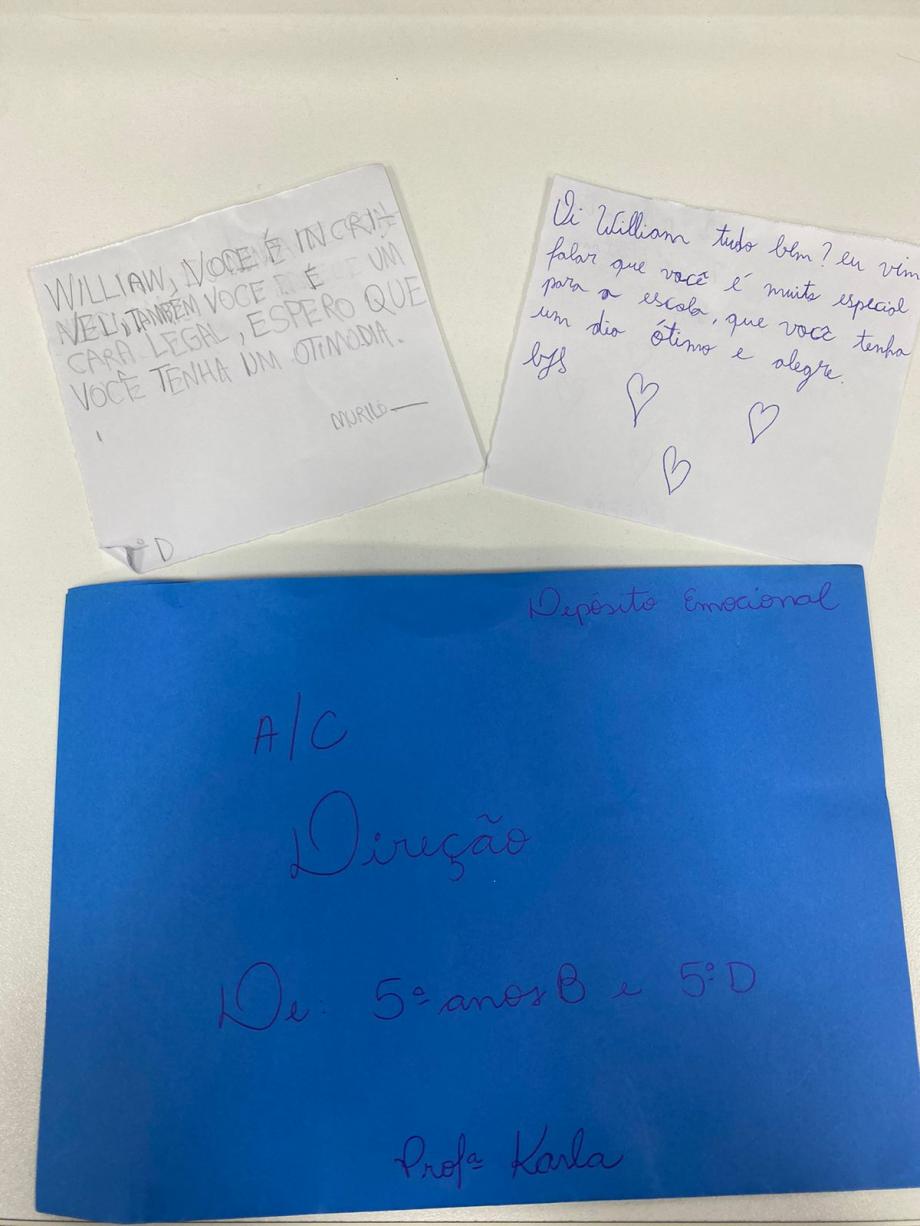 WILLIAM, VOCE É INCRI-
VEL, TAMBÉM VOCE É UM
CARA LEGAL, ESPERO QUE
VOCÊ TENHA UM OTIMO DIA.
MURILO
D
Oi William tudo bem? eu vim
falar que você é muito especial
para a escola, que você tenha
um dia ótimo e alegre.
bjs
Depósito Emocional
A/C
Direção
De 5º anos B e 5º D
Profª Karla